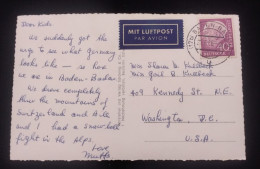 Dear Kids
We suddenly got the
way to see what Germany
looks like — so here
we are in Baden-Baden
We drove completely
thru the mountains of
Switzerland and
and I had a snowball
fight in the Alps.
Love
MIT LUFTPOST
PAR AVION
Miss Sharon
Miss Gail B.
409 Kennedy St. N.E.
Washington, D.C.
U.S.A.